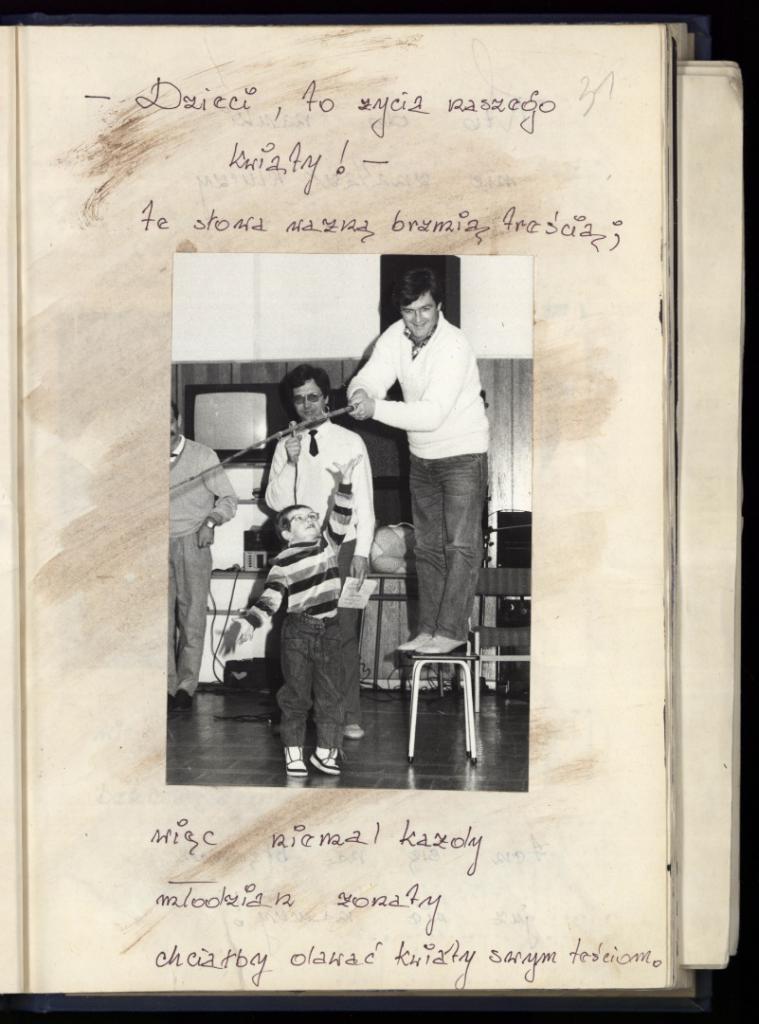 31
– Dzieci, to życia naszego
kwiaty! –
te słowa ważną brzmią treścią;
więc niemal każdy
młodzian żonaty
chciałby dawać kwiaty swym teściom.